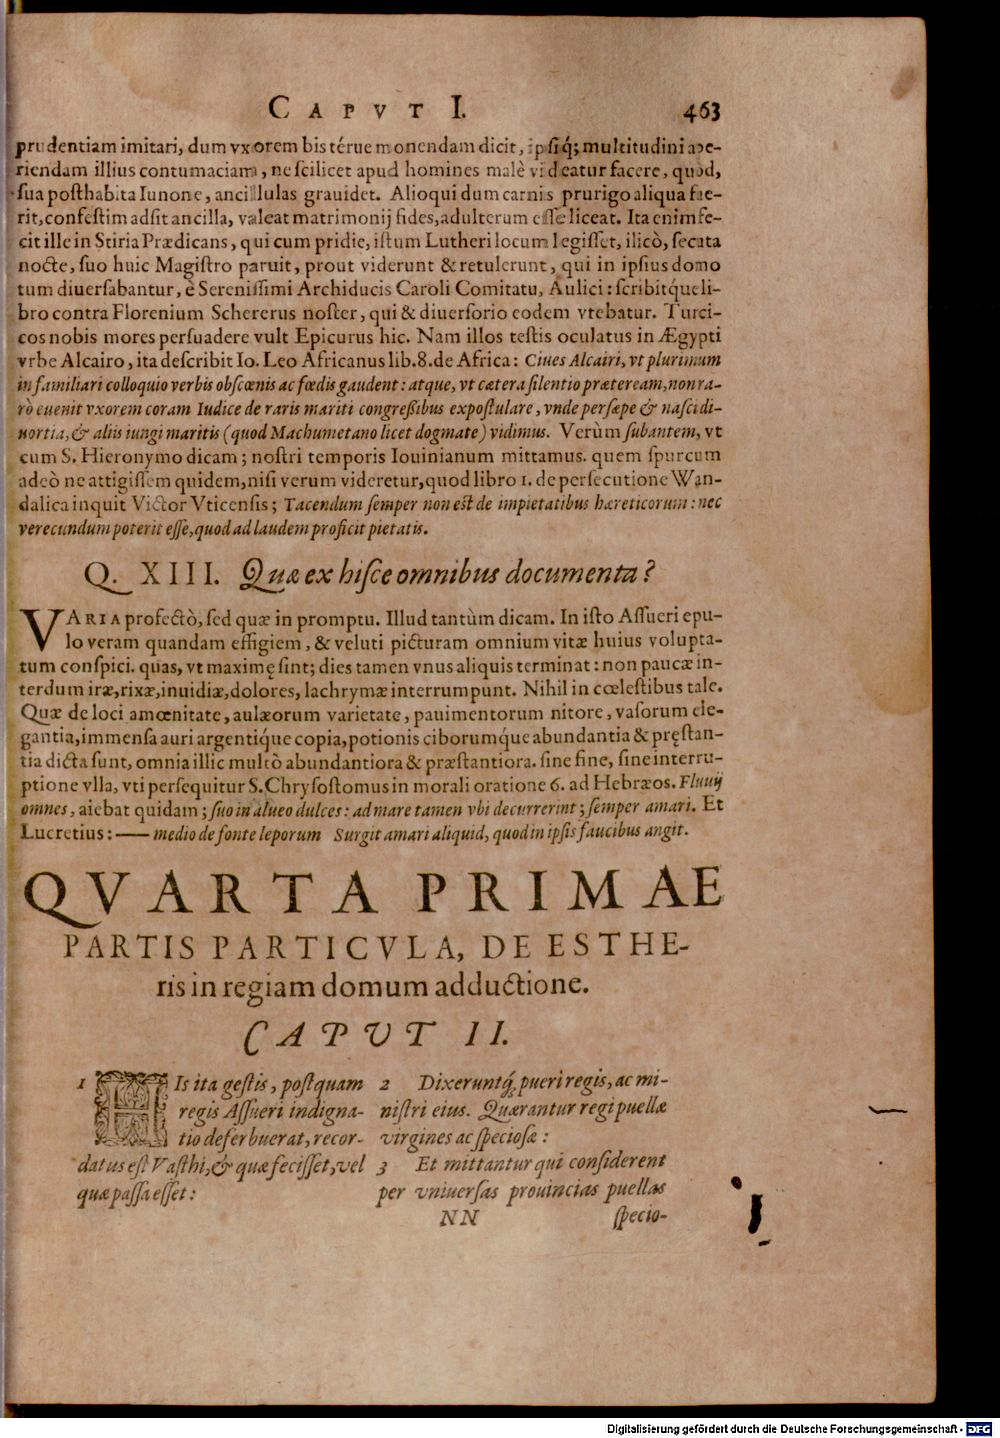 CAPVT I. 463
prudentiam imitari, dum vxorem bis térue monendam dicit, ipsiq́; multitudini ape-
riendam illius contumaciam, ne scilicet apud homines malè videatur facere, quòd,
sua posthabita Iunone, ancillulas grauidet. Alioqui dum carnis prurigo aliqua fue-
rit, confestim adsit ancilla, valeat matrimonij fides, adulterum esse liceat. Ita enim fe-
cit ille in Stiria Prædicans, qui cum pridie, istum Lutheri locum legisset, ilicò, secuta
nocte, suo huic Magistro paruit, prout viderunt & retulerunt, qui in ipsius domo
tum diuersabantur, è Serenissimi Archiducis Caroli Comitatu, Aulici: scribitque li-
bro contra Florenium Schererus noster, qui & diuersorio eodem vtebatur. Turci-
cos nobis mores persuadere vult Epicurus hic. Nam illos testis oculatus in Ægypti
vrbe Alcairo, ita describit Io. Leo Africanus lib. 8. de Africa: Ciues Alcairi, vt plurimum
in familiari colloquio verbis obscœnis ac fœdis gaudent: atque, vt cætera silentio præteream, non ra-
rò euenit vxorem coram Iudice de raris mariti congreßibus expostulare, vnde persæpe & nasci di-
uortia, & aliis iungi maritis (quod Machumetano licet dogmate) vidimus. Verùm subantem, vt
cum S. Hieronymo dicam; nostri temporis Iouinianum mittamus. quem spurcum
adeò ne attigissem quidem, nisi verum videretur, quod libro 1. de persecutione Wan-
dalica inquit Victor Vticensis; Tacendum semper non est de impietatibus hæreticorum: nec
verecundum poterit esse, quod ad laudem proficit pietatis.
Q. XIII. Quæ ex hisce omnibus documenta?
VARIA profectò, sed quæ in promptu. Illud tantùm dicam. In isto Assueri epu-
lo veram quandam effigiem, & veluti picturam omnium vitæ huius volupta-
tum conspici. quas, vt maximę sint; dies tamen vnus aliquis terminat: non paucæ in-
terdum iræ, rixæ, inuidiæ, dolores, lachrymæ interrumpunt. Nihil in cœlestibus tale.
Quæ de loci amœnitate, aulæorum varietate, pauimentorum nitore, vasorum ele-
gantia, immensa auri argentiq́ue copia, potionis ciborumq́ue abundantia & pręstan-
tia dicta sunt, omnia illic multò abundantiora & præstantiora. sine fine, sine interru-
ptione vlla, vti persequitur S. Chrysostomus in morali oratione 6. ad Hebræos. Fluuij
omnes, aiebat quidam; suo in alueo dulces: ad mare tamen vbi decurrerint; semper amari. Et
Lucretius: —— medio de fonte leporum Surgit amari aliquid, quod in ipsis faucibus angit.
QVARTA PRIMAE
PARTIS PARTICVLA, DE ESTHE-
ris in regiam domum adductione.
CAPVT II.
1 HIs ita gestis, postquam
regis Assueri indigna-
tio deferbuerat, recor-
datus est Vasthi, & quæ fecisset, vel
quæ passa esset:
2 Dixeruntq́; pueri regis, ac mi-
nistri eius. Quærantur regi puellæ
virgines ac speciosæ:
3 Et mittantur qui considerent
per vniuersas prouincias puellas
NN specio-
Digitalisierung gefördert durch die Deutsche Forschungsgemeinschaft - DFG